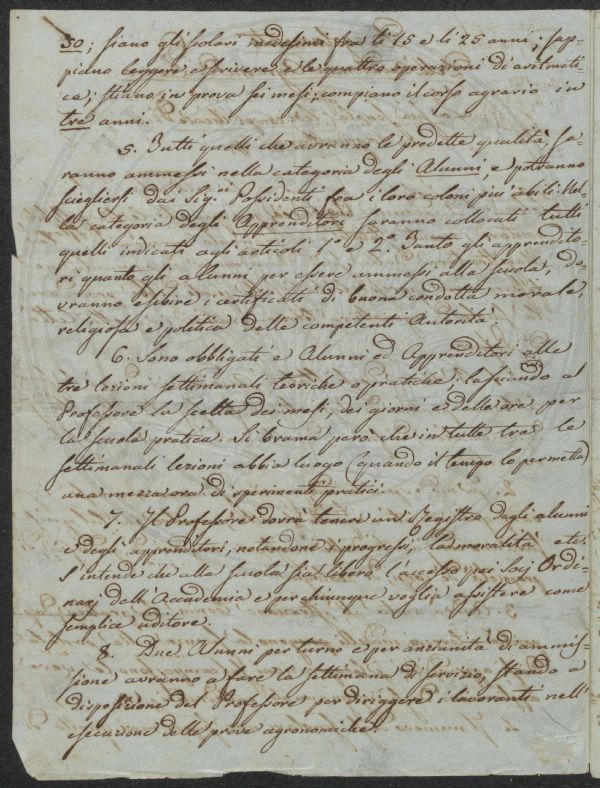 50; siano gli scolari medesimi fra li 15 e li 25 anni; sap-
piano leggere e scrivere e le quattro operazioni di aritmeti-
ca; stiano in prova sei mesi; compiano il corso agrario in
tre anni.
5. Tutti quelli che avranno le predette qualità sa-
ranno ammessi nella categoria degli Alunni, e potranno
sciegliersi dai Sig.ri Possidenti fra i loro coloni più abili. Nel-
la categoria degli Apprenditori saranno collocati tutti
quelli indicati agli articoli 1.° e 2.° Tanto gli apprendito-
ri quanto gli alunni, per essere ammessi alla scuola, do-
vranno esibire i certificati di buona condotta morale,
religiosa e politica delle competenti Autorità
6. Sono obbligati e Alunni ed Apprenditori alle
tre lezioni settimanali teoriche o pratiche; lasciando al
Professore la scelta dei mesi, dei giorni e delle ore per
la scuola pratica. Si brama però che in tutte tre le
settimanali lezioni abbia luogo (quando il tempo lo permetta)
una mezza ora di sperimenti pratici.
7. Il Professore dovrà tenere un Registro degli alunni
e degli apprenditori, notandone i progressi, la moralità etc.
S'intende che alla scuola sia libero l'accesso pei Socj Ordi-
narj dell'Accademia e per chiunque voglia assistere come
semplice uditore.
8. Due Alunni per turno e per anzianità di ammis-
sione avranno a fare la settimana di servizio, stando a
disposizione del Professore per diriggere i lavoranti nell'
esecuzione delle prove agronomiche.